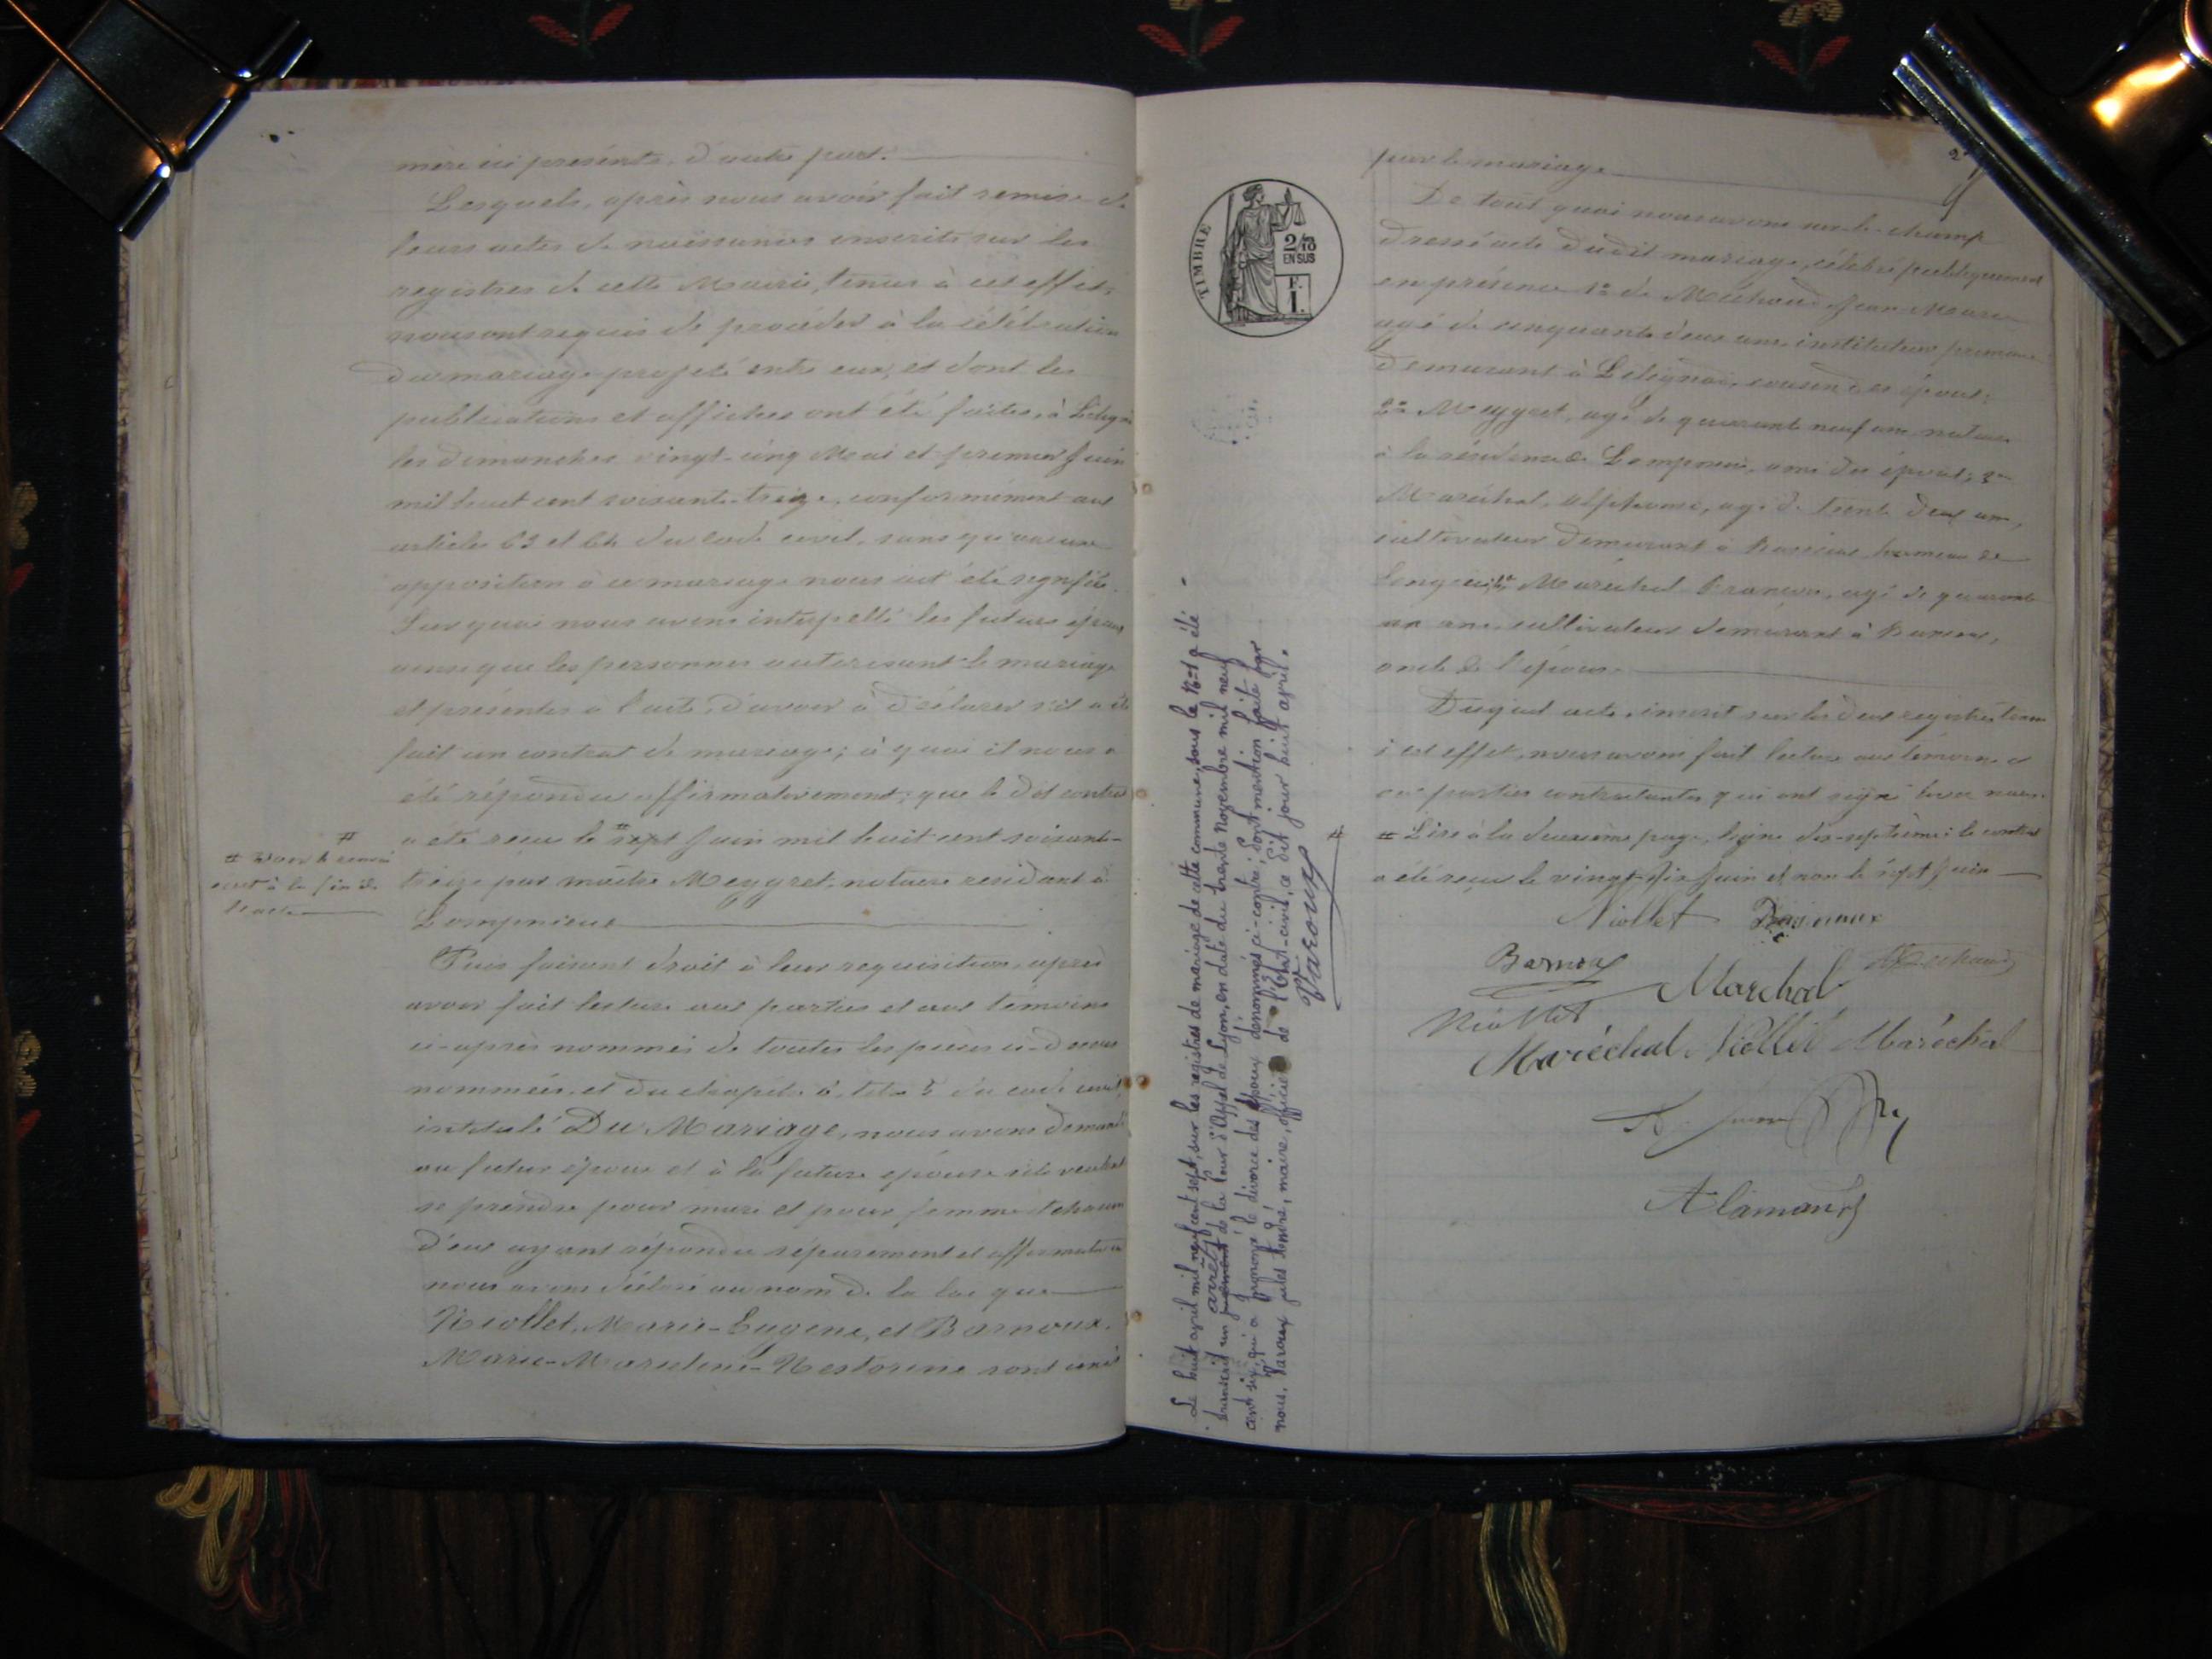 mère ici présente, d'autre part.
Lesquels, après nous avoir fait remise de
leurs actes de naissances inscrits sur les
registres de cette Mairie, tenus à cet effet,
nous ont requis de procéder à la célébration
du mariage projeté entre eux, et dont les
publications et affiches ont été faites, à
les dimanches vingt-cinq Mai et premier Juin
mil huit cent soixante-treize, conformément aux
articles 63 et 64 du code civil, sans qu'aucune
opposition à ce mariage nous ait été signifiée.
Sur quoi nous avons interpellé les futurs époux
ainsi que les personnes autorisant le mariage
et présentes à l'acte, d'avoir à déclarer s'il a été
fait un contrat de mariage; à quoi il nous a
été répondu affirmativement; que le dit contrat
a été reçu le # sept Juin mil huit cent soixante-
treize par maître Meygret, notaire résidant à
Lompnieu
#
# Voir le renvoi
écrit à la fin de
l'acte
Puis faisant droit à leur requisition, après
avoir fait lecture aux parties et aux témoins
ci-après nommés de toutes les pièces ci-dessus
nommées, et du chapitre 6, titre 5 du code civil,
intitulé Du Mariage, nous avons demandé
au futur époux et à la future épouse s'ils veulent
se prendre pour mari et pour femme et chacun
d'eux ayant répondu séparement et affirmativ
nous avons déclaré au nom de la loi que
Niollet, Marie-Eugène, et Barnoux.
Marie- -Nestorine sont unis
TIMBRE
2/10
EN SUS
F.
1.
Le huit april mil neuf cent sept, sur les registres de mariage de cette commune, sous le N=1 a été
transcrit un jugement arrêt de la Cour d'Appel de Lyon, en date du trente Novembre mil neuf
cent six, qui a prononcé le divorce des époux dénommés ci-contre, dont mention faite par
nous, Varoux jules , maire, officier de l'État-civil, ce dit jour huit april.
Varoux
par le mariage
De tout quoi nous avons sur-le-champ
dressé acte dudit mariage, célébré publiquement
en présence 1° de Michaud Jean-Marie
agé de cinquante deux ans, instituteur primaire
demeurant à , cousin des époux;
2° Meygret, agé de quarante neuf ans, notaire
à la résidence de Lompnieu, ami des époux; 3°
Maréchal, Alphonse, agé de trente deux ans,
cultivateur demeurant à hameau de
4° Maréchal François, agé de quarante
ans, cultivateur demeurant à
oncle de l'époux.
Duquel acte, inscrit sur les deux registres tenus
à cet effet, nous avons fait lecture aux témoins et
aux parties contractantes qui ont signé avec nous.
# # Lire à la deuxième page, ligne dix-septième: le contrat
a été reçu le vingt-dix Juin et non le sept Juin
Niollet
Michaud
Marechal
Niollet
Maréchal Niollet Maréchal